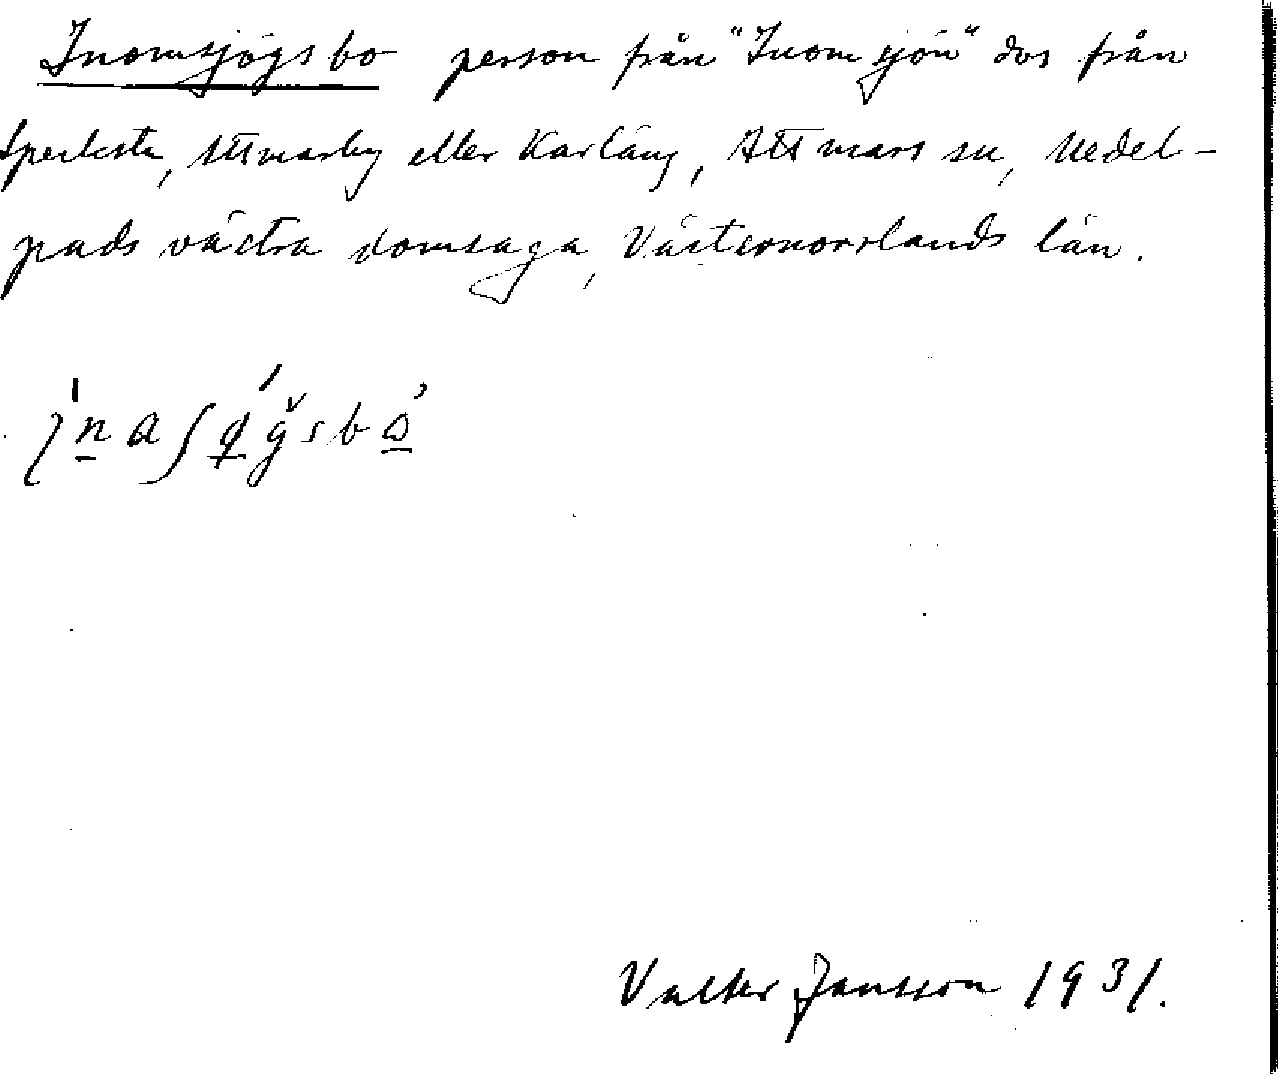 Inomsjögsbo person från "Inomsjön" dvs från
Sperlesta, Attmarby eller Karläng, Attmars sn, Medel-
pads västra domsaga, Västernorrlands län.
Valter Jansson 1931.